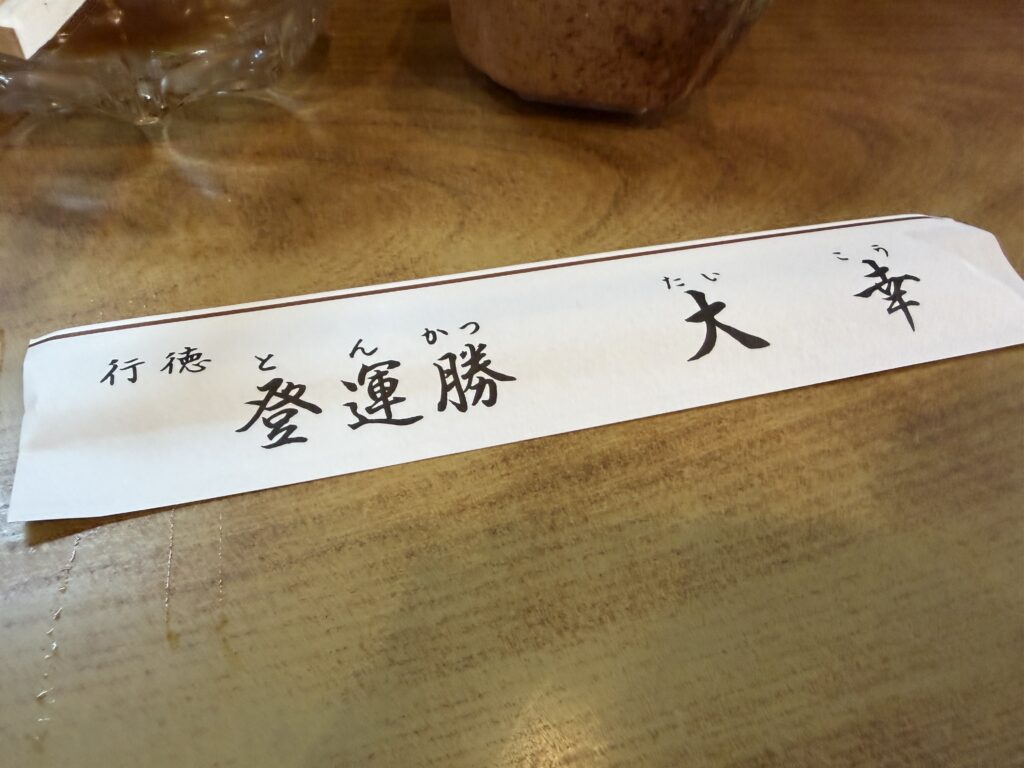 行徳 登運勝 大幸
と ん かつ たい こう